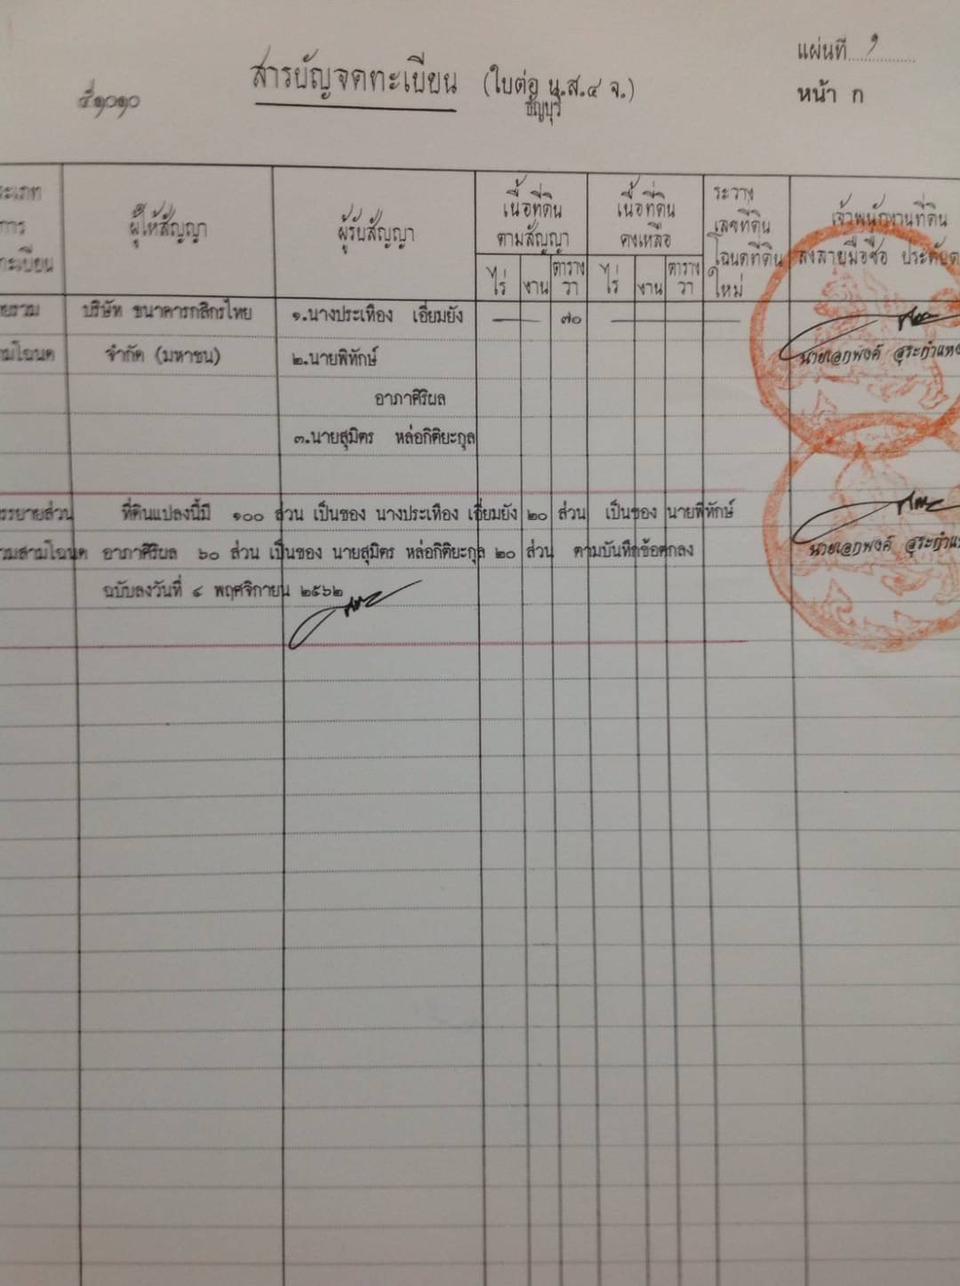 แผ่นที่ ๑
สารบัญจดทะเบียน (ใบต่อ น.ส.๔ จ.)
หน้า ก
ธัญบุรี
ประเภทการจดทะเบียน ผู้ให้สัญญา ผู้รับสัญญา เนื้อที่ดินตามสัญญา เนื้อที่ดินคงเหลือ ระวาง เลขที่ดิน โฉนดที่ดินใหม่ เจ้าพนักงานที่ดิน ลงลายมือชื่อ ประทับ
ไร่ งาน ตารางวา ไร่ งาน ตารางวา
บริษัท ธนาคารกสิกรไทย ๑.นางประเทือง เอี่ยมยัง ๗๐
โฉนด จำกัด (มหาชน) ๒.นายพิทักษ์ นายเอกพงค์
อาภาศิริผล
๓.นายสุมิตร หล่อกิติยะกุล
บรรยายส่วน ที่ดินแปลงนี้มี ๑๐๐ ส่วน เป็นของ นางประเทือง เอี่ยมยัง ๒๐ ส่วน เป็นของ นายพิทักษ์
อาภาศิริผล ๖๐ ส่วน เป็นของ นายสุมิตร หล่อกิติยะกุล ๒๐ ส่วน ตามบันทึกข้อตกลง นายเอกพงค์
ฉบับลงวันที่ ๔ พฤศจิกายน ๒๕๖๒